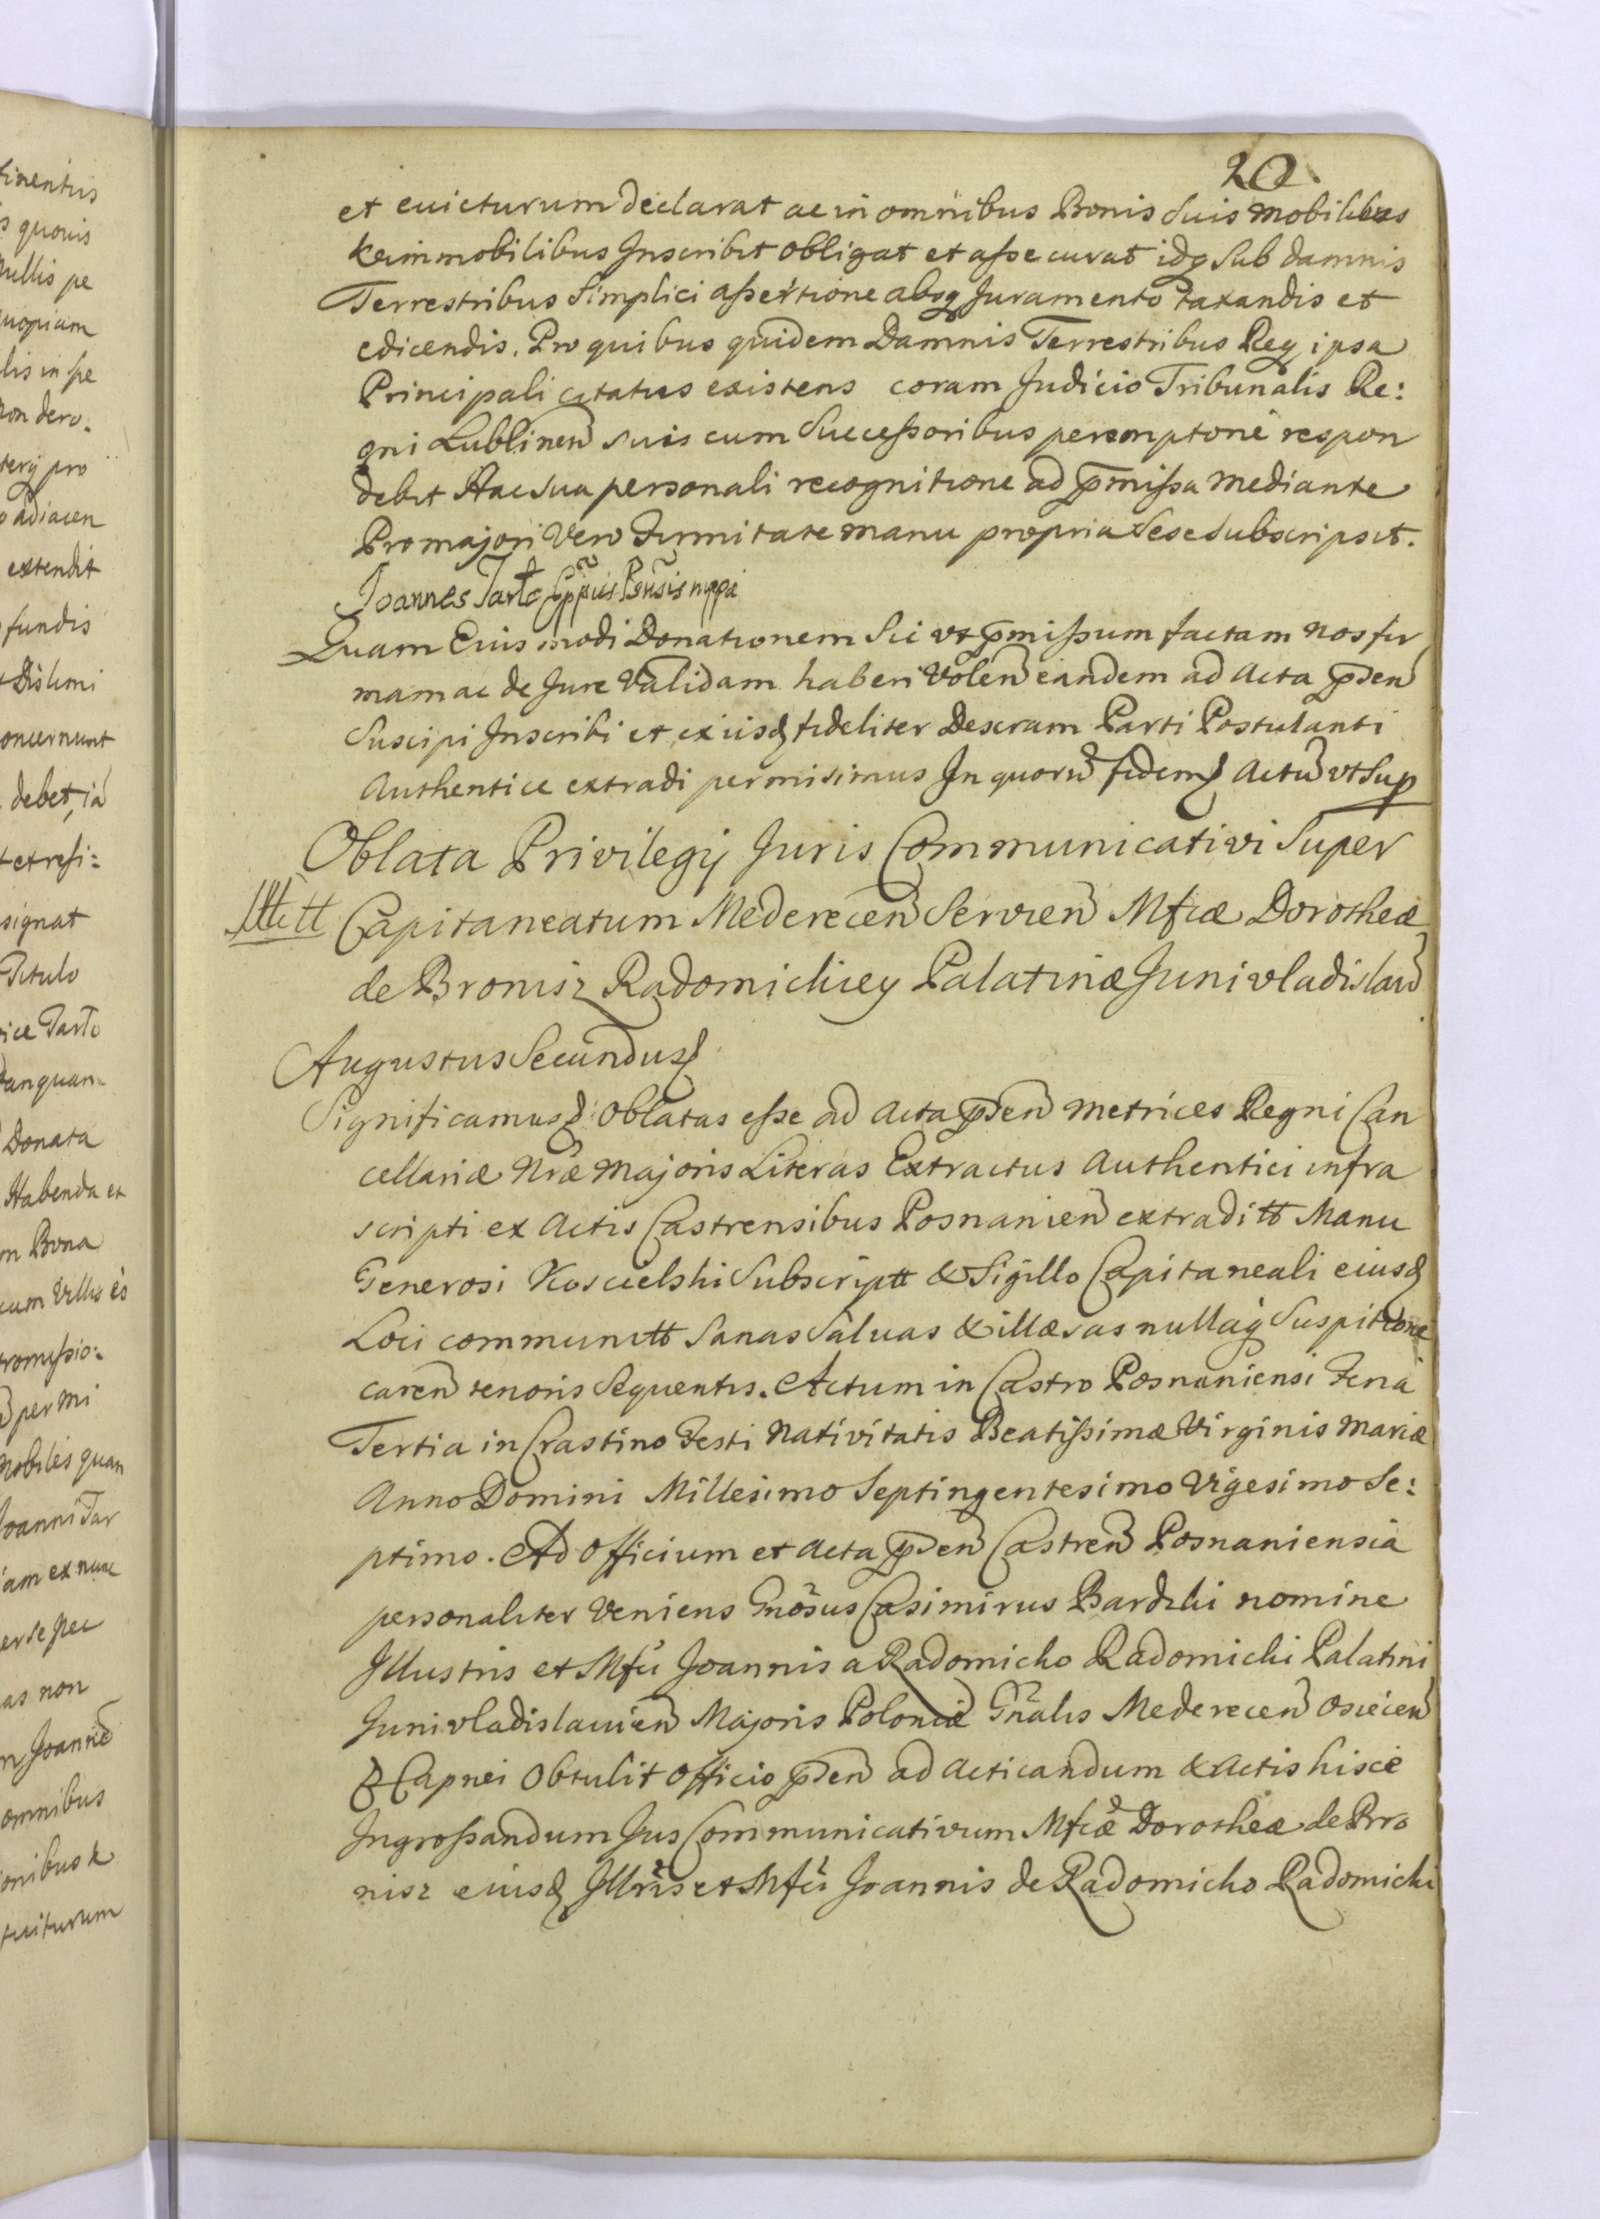 20.
et euicturum declarat ac in omnibus Bonis Suis Mobilibus
&immobilibus Inscribit obligat et assecurat idq Sub damnis
Terrestribus Simplici assertione absq Juramento taxandis et
edicendis. Pro quibus quidem Damnis Terrestribus Req ipsa
Principali citatus existens coram Judicio Tribunalis Re:
gni Lublinen suis cum Successoribus peremptorie respon
debit Hac sua personali recognitione ad p̄missa mediante
Pro majori Vero Firmitate manu propria Sese Subscripsit.
Joannes Tarło Eppūs Posnsis mppa
Quam Eius modi Donationem Sic vt p̄missum factam nos fir
mam ac de Jure Validam haberi Volen eandem ad Acta p̄sen
Suscipi Inscribi et ex iisd fideliter Descram Parti Postulanti
Authentice extradi permisimus In quorū fidem Actū vt Sup
Oblata Privilegij Juris Communicativi Super
Capitaneatum Mederecen Servien Mfcæ Dorotheæ
de Bronisz Radomickiey Palatinæ Junivladislau
Augustus Secundus
Significamus Oblatas esse ad Acta p̄sen Metrices Regni Can
cellariæ Nræ Majoris Literas Extractus Authentici infra
scripti ex Actis Castrensibus Posnanien extraditt Manu
Generosi Koscielski Subscriptt & Sigillo Capitaneali eiusd
Loci communitt Sanas Saluas & illæsas nullaq Suspitione
caren tenoris Sequentis. Actum in Castro Posnaniensi Feria
Tertia in Crastino Festi Nativitatis Beatissimæ Virginis Mariæ
Anno Domini Millesimo Septingentesimo Vigesimo Se:
ptimo. Ad Officium et Acta p̄sen Castren Posnaniensia
personaliter Veniens Gnosus Casimirus Bardzki nomine
Illustris et Mfci Joannis a Radomicko Radomicki Palatini
Junivladislauien Majoris Poloniæ Gnalis Mederecen Osiecen
& Capnei Obtulit Officio p̄sen ad Acticandum & Actis hisce
Ingrossandum Jus Communicativum Mfcæ Dorotheæ de Bro
nisz eiusd Illris et Mfci Joannis de Radomicko Radomicki